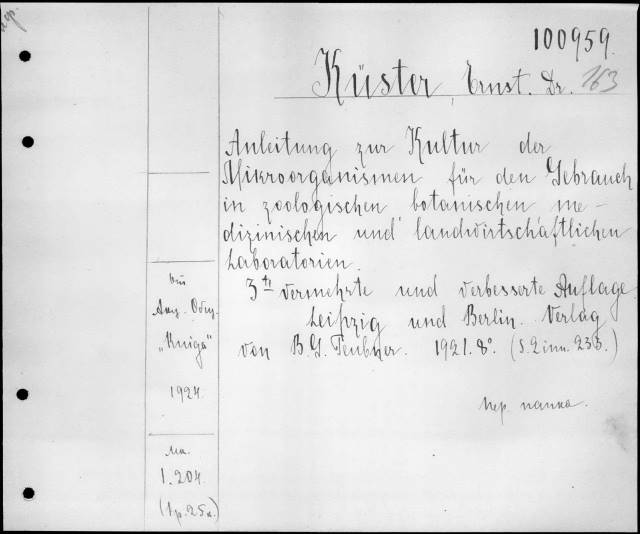 100959.
Küster, Ernst. Dr. 163
Anleitung zur Kultur der
Mikroorganismen für den Gebrauch
in zoologischen botanischen me-
dizinischen und landwirtschaftlichen
Laboratorien.
3te vermehrte und verbesserte Auflage
Leipzig und Berlin. Verlag
von B. G. Teubner. 1921. 8°. (S. 2 inn. 233.)
пер. папка.
„Kniga"
1924.
1.204